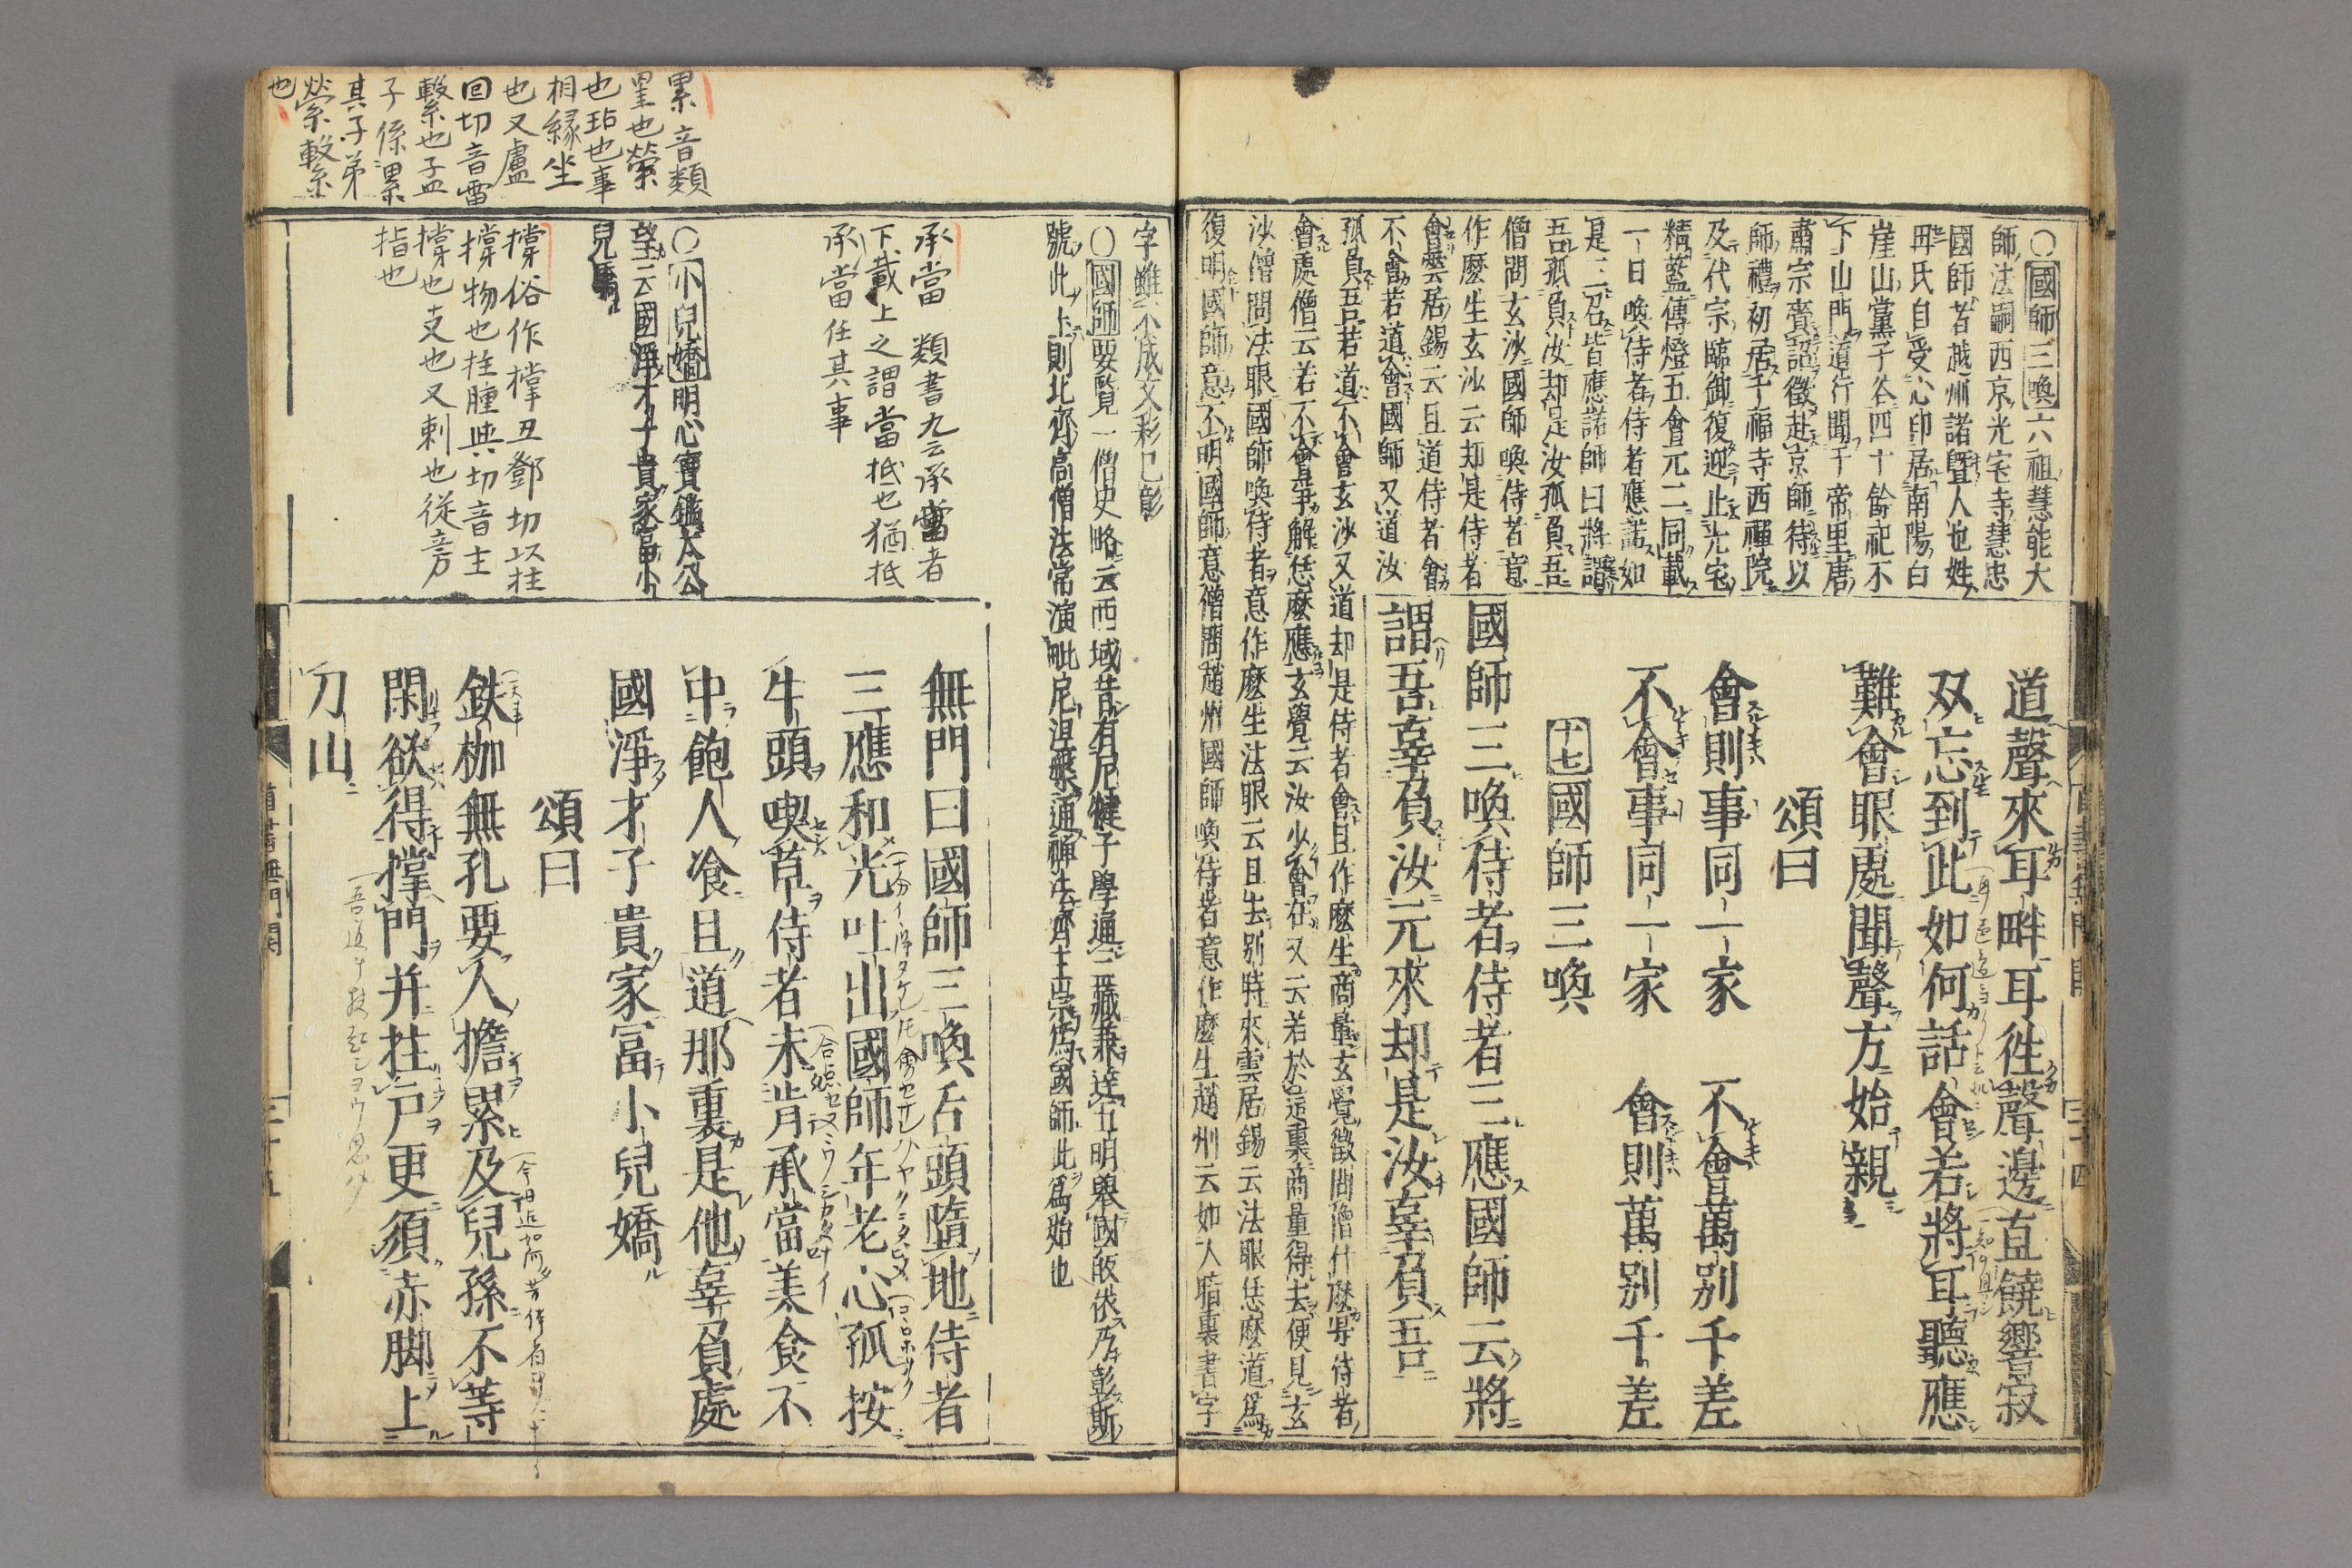 道聲來耳畔耳徃聲邊直饒響寂
双忘到此如何話會若將耳聽應
難會眼處聞聲方始親
頌曰
會則事同一家　不會萬別千差
不會事同一家　會則萬別千差
十七國師三喚
國師三喚侍者侍者三應國師云將
謂吾辜負汝元來却是汝辜負吾
〇國師三喚六祖慧能大
師法嗣西京光宅寺慧忠
國師者越州諸曁人也姓
冉氏自受心印居南陽白
崖山黨子谷四十餘祀不
下山門道行聞于帝里唐
肅宗賚詔徵赴京師待以
師禮初居千福寺西禪院
及代宗臨御復迎止光宅
精藍傳燈五會元二同載
一日喚侍者侍者應諾如
是三召皆應諾師曰將謂
吾孤負汝却是汝孤負吾
僧問玄沙國師喚侍者意
作麼生玄沙云却是侍者
會雲居錫云且道侍者會
不會若道會國師又道汝
孤負吾若道不會玄沙又道却是侍者會且作麼生商量玄覺徵問僧什麼侍者
會處僧云若不會爭解恁麼應玄覺云汝少會在又云若於這裏商量得去便見玄
沙僧問法眼國師喚侍者意作麼生法眼云且去別時來雲居錫云法眼恁麼道爲
復明國師意不明國師意僧問趙州國師喚侍者意作麼生趙州云如人暗裏書字
字雖不成文彩已彰
〇國師要覽一僧史略云西域昔有尼犍子學通三藏兼達五明舉國皈依乃彰斯
號此土則北齊高僧法常演毗尼涅槃通禪法齊主崇爲國師此爲始也
無門曰國師三喚舌頭墮地侍者
三應和光吐出國師年老心孤按
牛頭喫草侍者未肯承當美食不
中飽人飡且道那裏是他辜負處
國淨才子貴家富小兒嬌
頌曰
鉄枷無孔要人擔累及兒孫不等
閑欲得撑門并拄戸更須赤脚上
刀山
承當　類書九云承當者
下載上之謂當抵也猶抵
承當任其事
〇小兒嬌明心寶鑑太公
望云國淨才子貴家富小
兒驕
撑俗作撑丑鄧切以拄
撑物也拄腫與切音主
撑也支也又刺也從旁
指也
累音類
罣也縈
也玷也事
相縁坐
也又盧
回切音雷
繫也孟
子係累
其子弟
縈繫
也